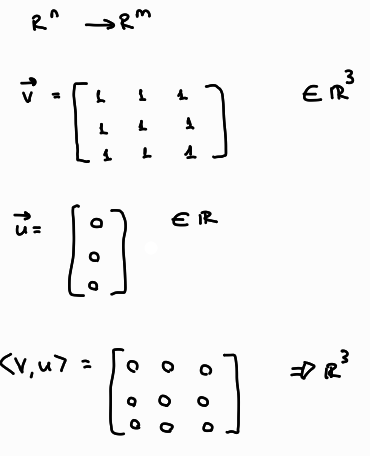 Rⁿ → Rᵐ
v⃗ = [1 1 1
1 1 1
1 1 1] ∈ ℝ³
u⃗ = [0
0
0] ∈ ℝ
<v,u> = [0 0 0
0 0 0
0 0 0] ⇒ ℝ³